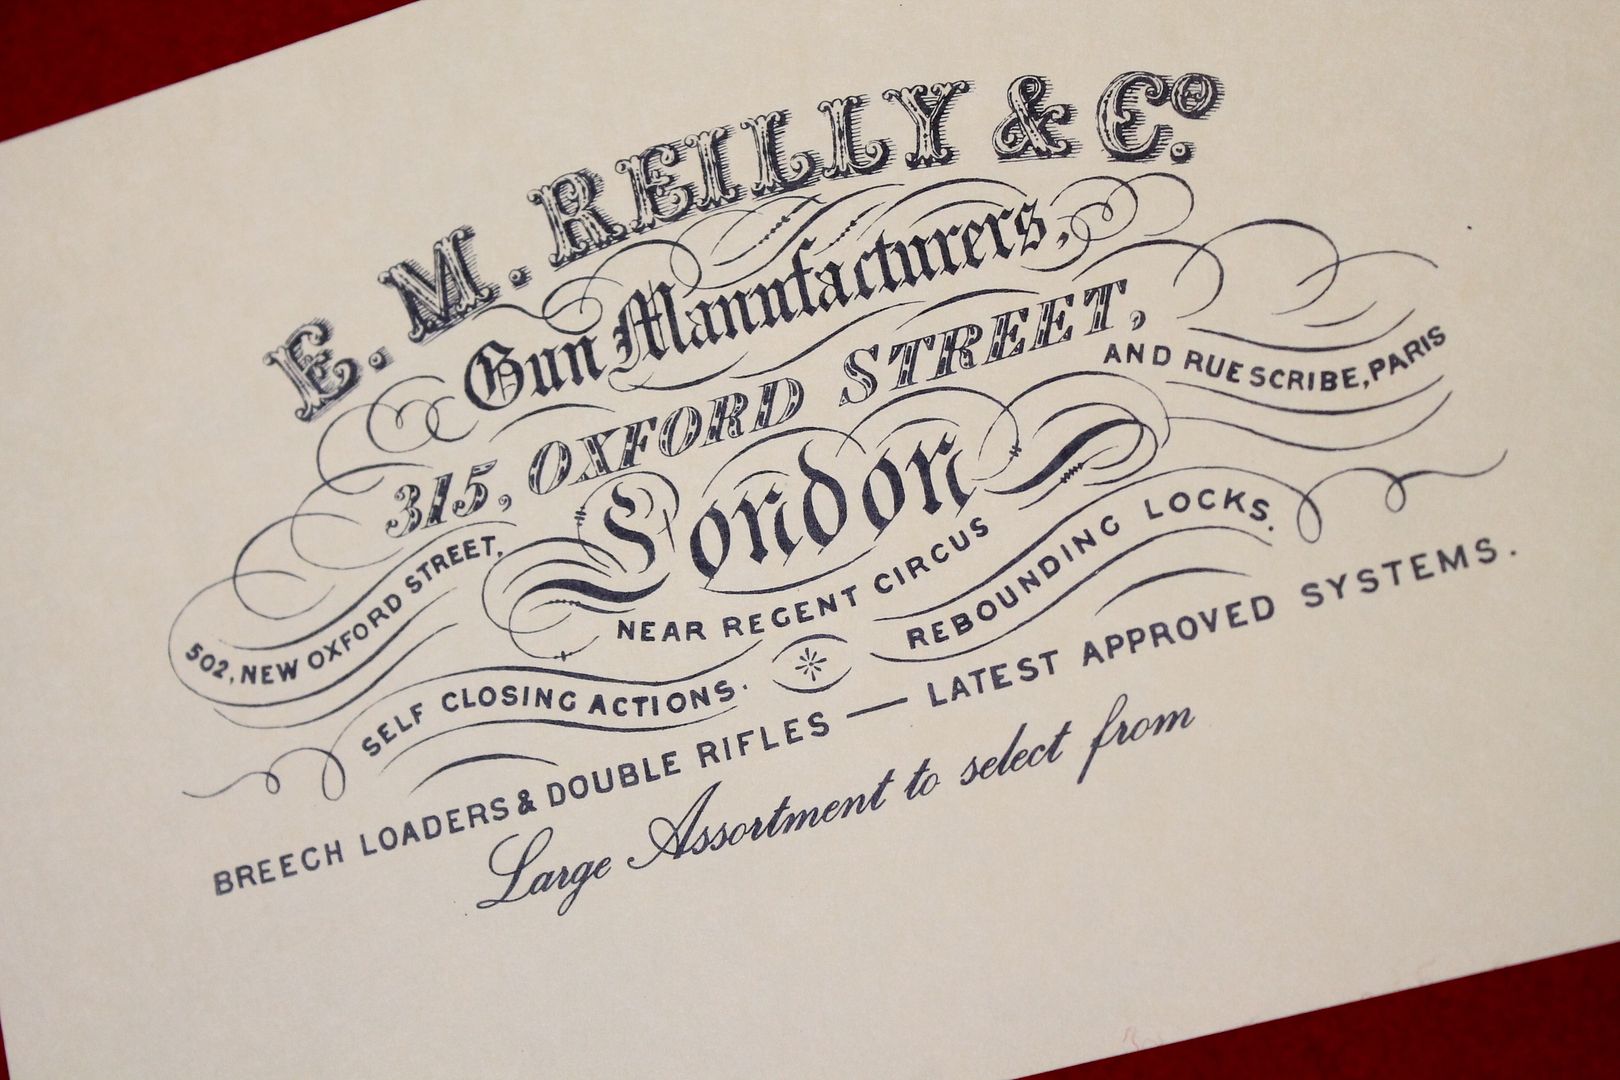 E. M. REILLY & Cº.
Gun Manufacturers,
315, OXFORD STREET,
AND RUE SCRIBE, PARIS
London
502, NEW OXFORD STREET.
NEAR REGENT CIRCUS
SELF CLOSING ACTIONS.
REBOUNDING LOCKS.
BREECH LOADERS & DOUBLE RIFLES — LATEST APPROVED SYSTEMS.
Large Assortment to select from